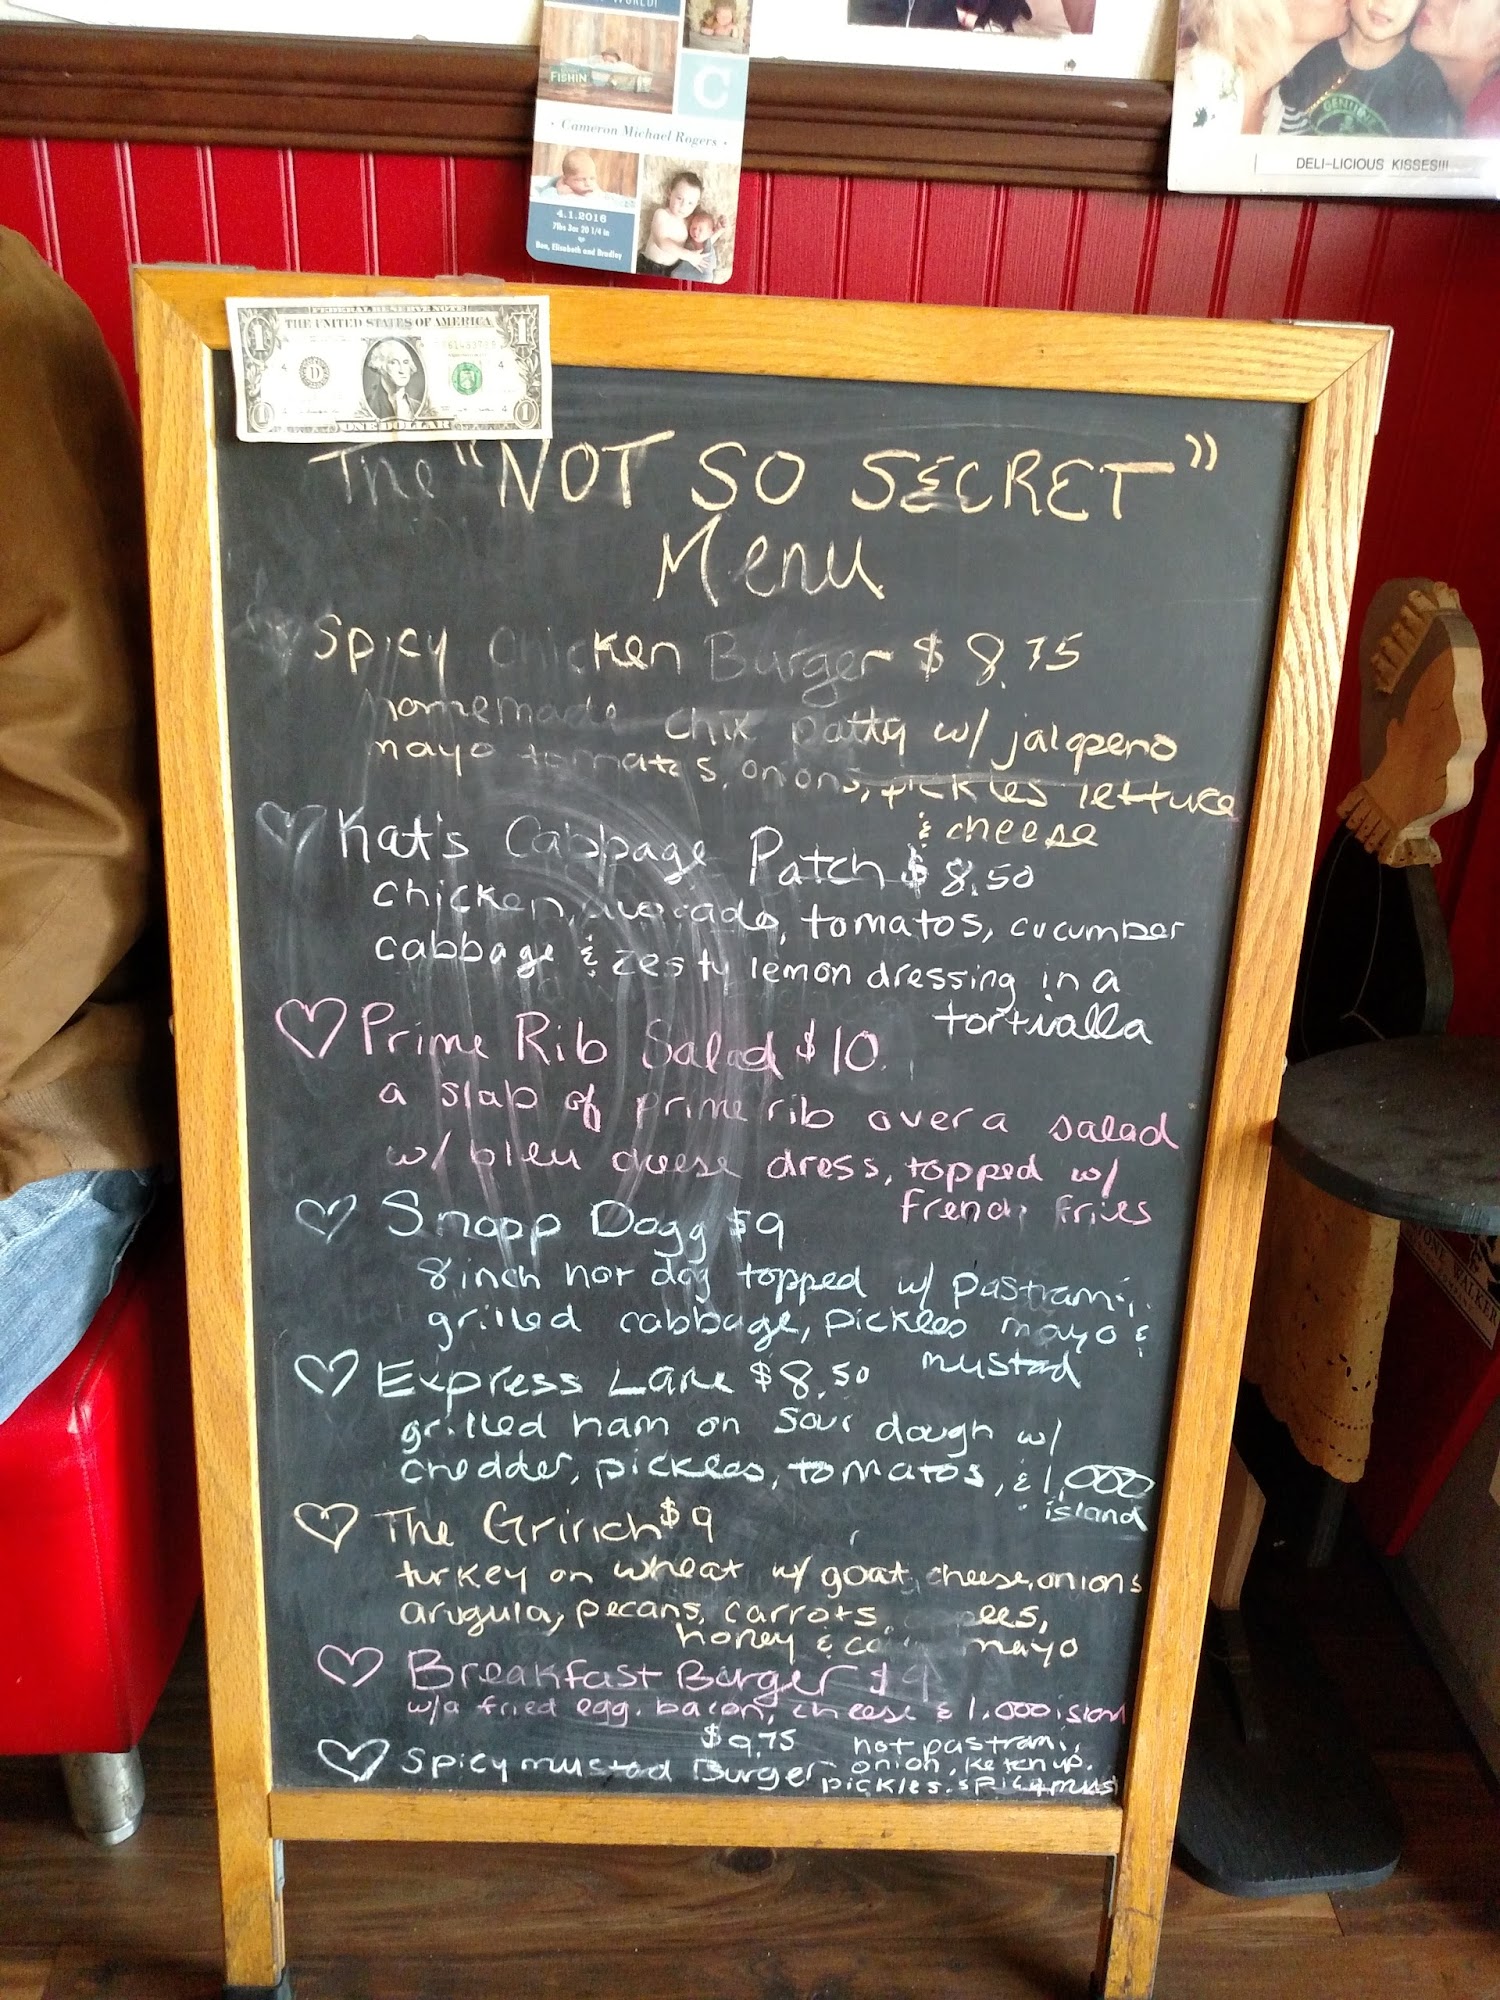 FISHIN
C
· Cameron Michael Rogers ·
4.1.2016
7lbs 3oz 20 1/4 in
Ben, Elizabeth and Bradley
DELI-LICIOUS KISSES!!!
FEDERAL RESERVE NOTE
THE UNITED STATES OF AMERICA
ONE DOLLAR
The "NOT SO SECRET"
Menu
Spicy Chicken Burger $8.75
homemade chix patty w/ jalapeno
mayo tomatos, onions, pickles lettuce
& cheese
Kat's Cabbage Patch $8.50
chicken, avocado, tomatos, cucumber
cabbage & zesty lemon dressing in a
tortialla
Prime Rib Salad $10
a slab of prime rib over a salad
w/ bleu cheese dress, topped w/
french fries
Snopp Dogg $9
8 inch hot dog topped w/ pastrami,
grilled cabbage, pickles mayo &
mustad
Express Lane $8.50
grilled ham on sour dough w/
chedder, pickles, tomatos, & 1,000
island
The Grinch $9
turkey on wheat w/ goat cheese, onions
arugula, pecans, carrots,
honey & mayo
Breakfast Burger $9
w/a fried egg, bacon, cheese & 1,000 island
$9.75 hot pastrami,
Spicy mustad Burger onion, ketchup,
pickles, spicy mus
WALKER